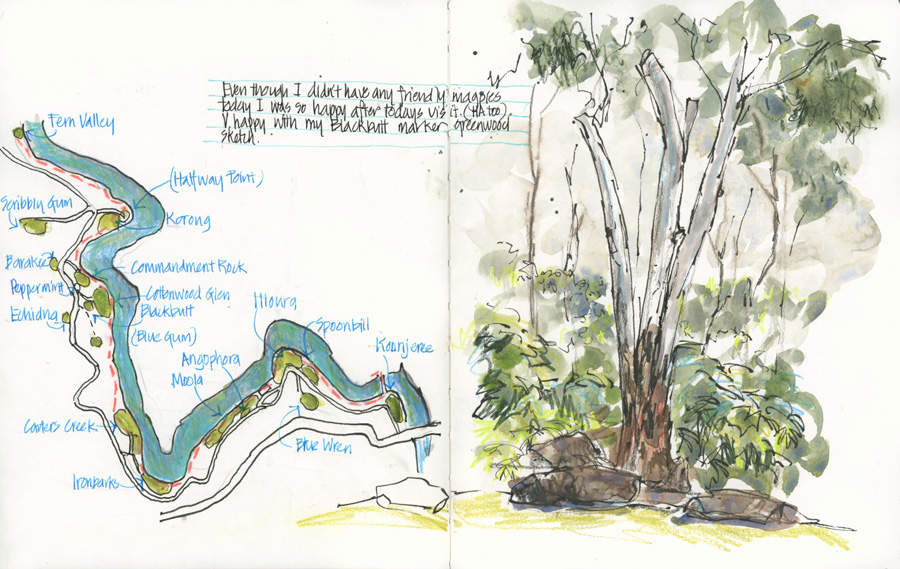 Even though I didn't have any friendly magpies
today I was so happy after todays visit. (HA too).
V happy with my Blackbutt marker greenwood
sketch.
Fern Valley
(Halfway Point)
Scribbly Gum
Korong
Barakee
Commandment Rock
Peppermint
Cottonwood Glen
Illoura
Echidna
Blackbutt
Spoonbill
(Blue Gum)
Koonjeree
Angophora
Moola
Carters Creek
Blue Wren
Ironbarks